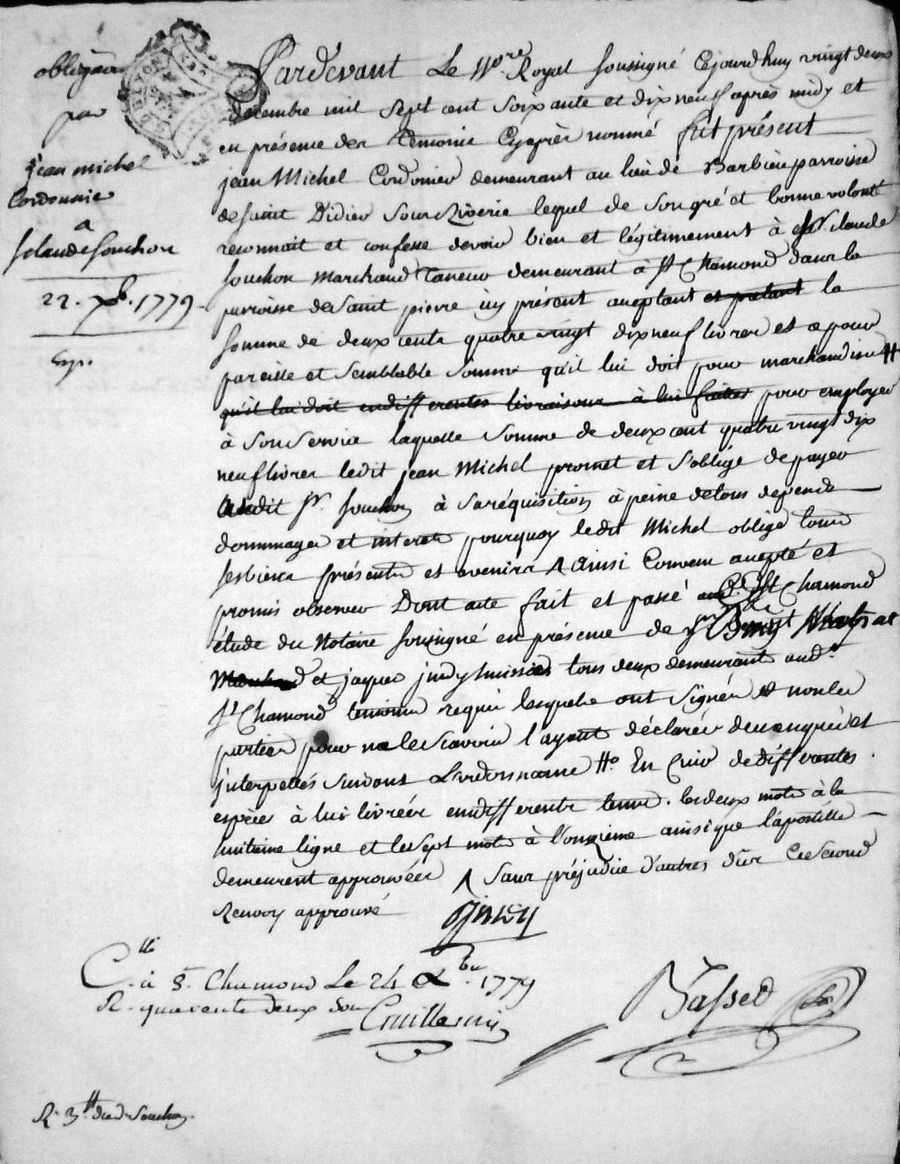 obligaõn
par
Jean michel
Cordonnie
a
sr claude souchon
22. Xb. 1779
Exp.
Pardevant Le Nore Royal soussigné cejourdhuy vingt deux
decembre mil sept cent soixante et dixneuf après midy et
en présence des temoins cyaprès nommé fut présent
jean Michel Cordonier demeurant au lieu de Barbieu parroisse
de saint Didier sous Riverie lequel de son gré et bonne volonté
reconnait et confesse devoir bien et légitimement à Sr. claude
souchon marchand taneur demeurant à St Chamond dans la
parroisse de Saint pierre icy présent aceptant et la
somme de deux cents quatre vingt dixneuf livres et ce pour
pareille et semblable somme qu'il lui doit pour marchandises #
qu'il lui doit en differentes livraisons à lui faittes pour employer
à son service laquelle somme de deux cent quatre vingt dix
neuf livres ledit jean Michel promet et s'oblige de payer
audit sr. souchon à sa réquisition à peine de tous depends
dommages et interets pourquoy ledit Michel oblige tous
ses biens présents et avenirs ^ ainsi convenu accepté et
promis observer Dont acte fait et passé St Chamond
étude du Notaire soussigné en présence de
et jaques tous deux demeurant aud.
St Chamond temoins requis lesquels ont signés & non les
parties pour ne le scavoir l'ayant déclarés de ce enquis et
interpellés suivant L'ordonnance #. En Cuir de differentes
espèces à lui livrées en differents tems. les deux mots à la
huitieme ligne et les sept mots à l'onzieme ainsi que l'apostille
demeurent approuvées ^ Sans préjudice d'autres dûs Ce second
Renvoy approuvé
C.lle à St. Chamond Le 24 Xbre 1779
R. quarente deux sou
R. 3# dud. Souchon